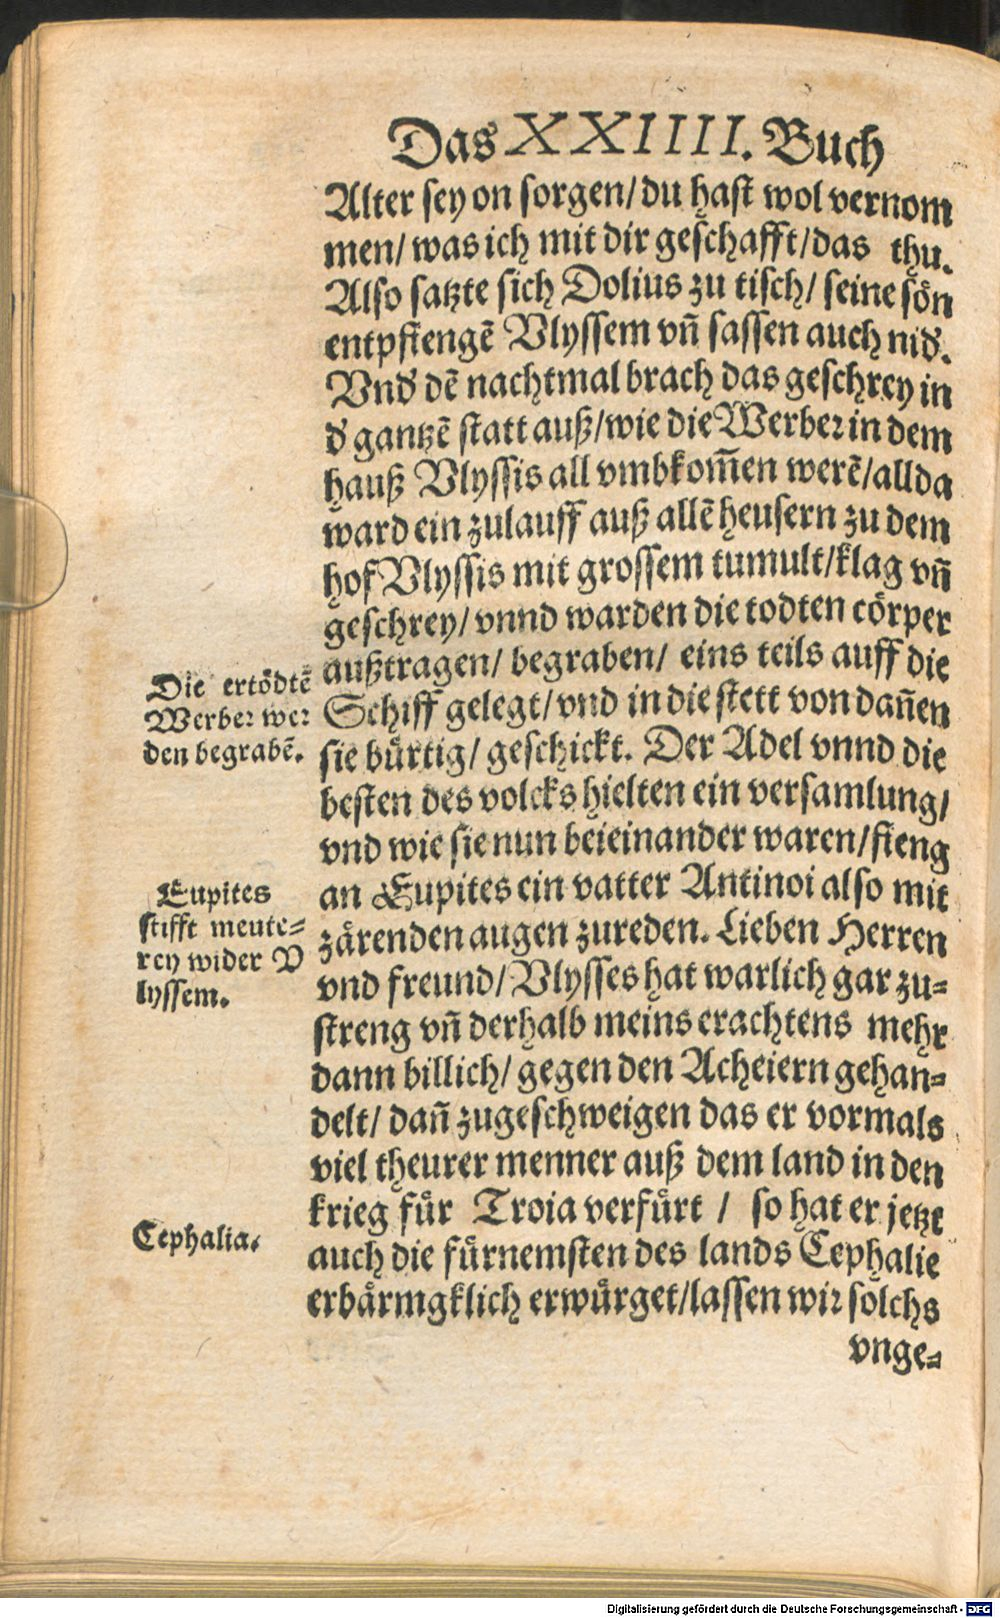 Das XXIIII. Buch
Alter sey on sorgen/ du hast wol vernom
men/ was ich mit dir geschafft/ das thu.
Also satzte sich Dolius zu tisch/ seine sön
entpfiengẽ Vlyssem vñ sassen auch nid᷑.
Vnd᷑ dẽ nachtmal brach das geschrey in
d᷑ gantzẽ statt auß/ wie die Werber in dem
hauß Vlyssis all vmbkom̃en werẽ/ allda
ward ein zulauff auß allẽ heusern zu dem
hof Vlyssis mit grossem tumult/ klag vñ
geschrey/ vnnd warden die todten cörper
außtragen/ begraben/ eins teils auff die
Schiff gelegt/ vnd in die stett von dañen
sie bürtig/ geschickt. Der Adel vnnd die
besten des volcks hielten ein versamlung/
vnd wie sie nun beieinander waren/ fieng
an Eupites ein vatter Antinoi also mit
zärenden augen zureden. Lieben Herren
vnd freund/ Vlysses hat warlich gar zu-
streng vñ derhalb meins erachtens mehr
dann billich/ gegen den Acheiern gehan-
delt/ dañ zugeschweigen das er vormals
viel theurer menner auß dem land in den
krieg für Troia verfürt / so hat er jetzt
auch die fürnemsten des lands Cephalie
erbärmgklich erwürget/ lassen wir sölchs
vnge-
Die ertödtẽ
Werber wer
den begrabẽ.
Eupites
stifft meute-
rey wider V
lyssem.
Cephalia.
Digitalisierung gefördert durch die Deutsche Forschungsgemeinschaft - DFG